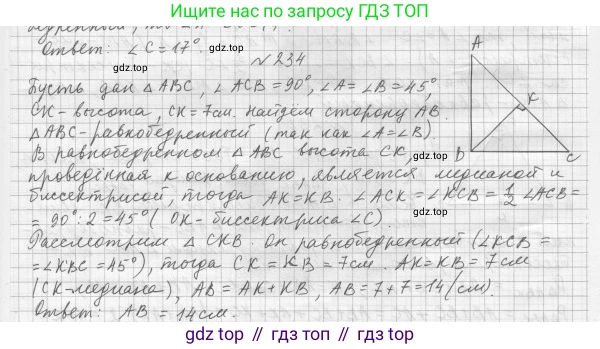 Ищите нас по запросу ГДЗ ТОП
Ответ: ∠C=17°.
гдз.top
№234
Пусть дан △ABC, ∠ACB=90°, ∠A=∠B=45°,
CK-высота, CK=7см. Найдём сторону AB.
△ABC-равнобедренный (так как ∠A=∠B).
В равнобедренном △ABC высота CK,
проведённая к основанию, является медианой и
биссектрисой, тогда AK=KB. ∠ACK=∠KCB=1/2 ∠ACB=
=90°:2=45° (CK-биссектриса ∠C).
Рассмотрим △CKB. Он равнобедренный (∠KCB=
=∠KBC=45°), тогда CK=KB=7см. AK=KB=7см
(CK-медиана), AB=AK+KB, AB=7+7=14(см).
Ответ: AB=14см.
A
K
C
gdz.top
gdz.top
gdz.top
gdz.top
gdz.top // гдз.топ // гдз.top